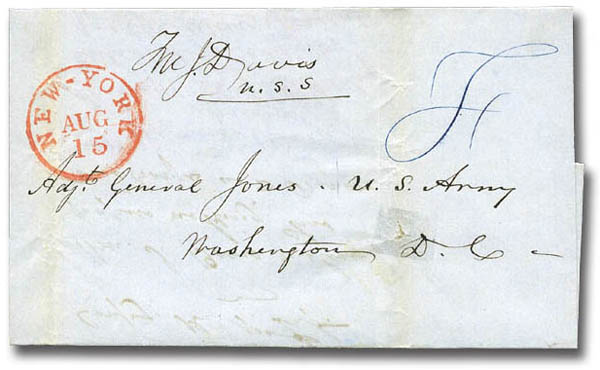 J. Davis
U.S.S
NEW-YORK
AUG
15
Adjt. General Jones. U.S. Army
Washington D.C. –